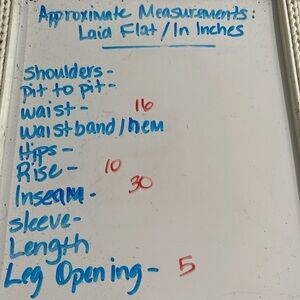 Approximate Measurements:
Laid Flat/In Inches
Shoulders -
pit to pit -
waist - 16
waistband/hem
Hips -
Rise - 10
Inseam - 30
sleeve -
Length
Leg Opening - 5